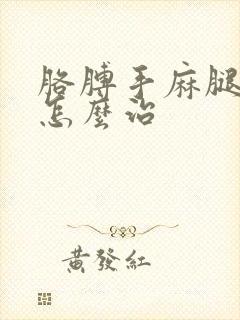 胳膊手麻腿
怎麼治
黃發紅